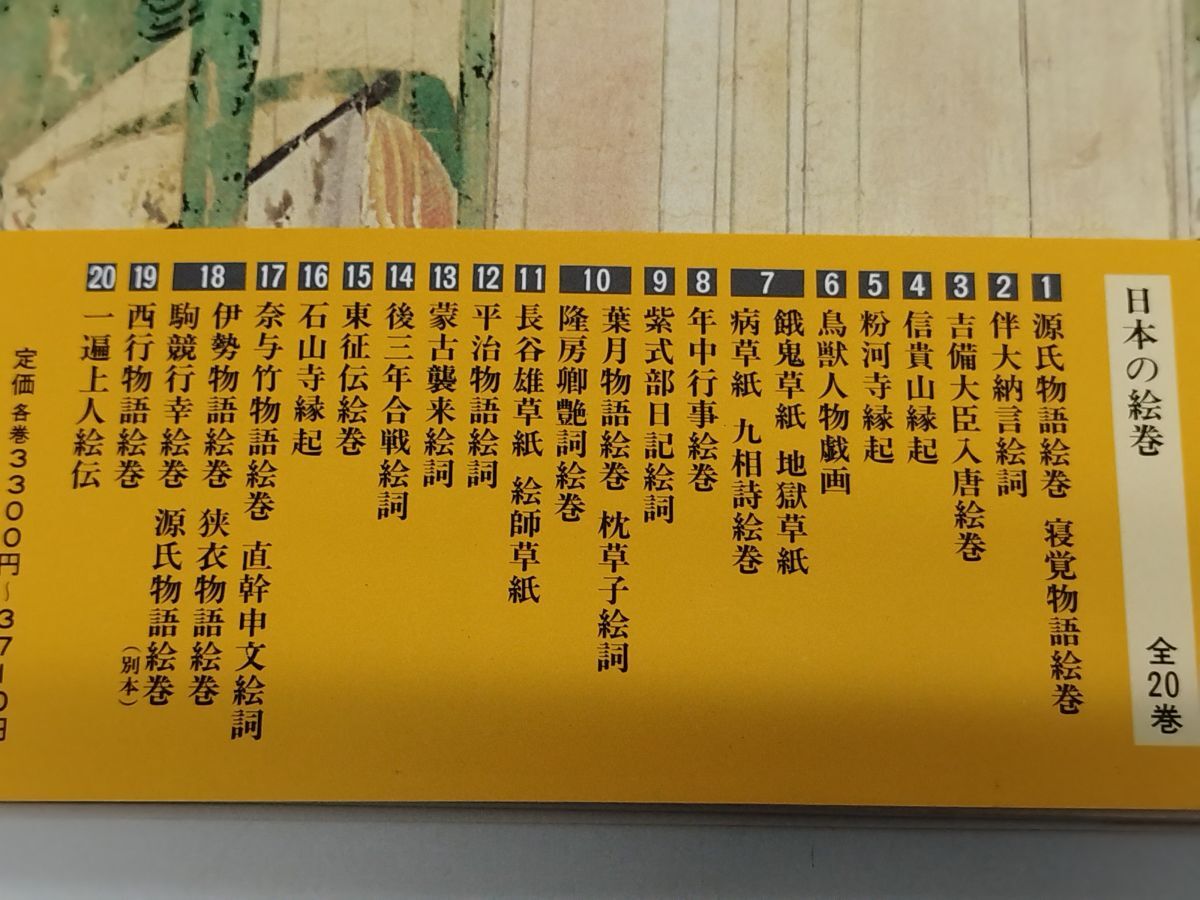 日本の絵巻 全20巻
1 源氏物語絵巻 寝覚物語絵巻
2 伴大納言絵詞
3 吉備大臣入唐絵巻
4 信貴山縁起
5 粉河寺縁起
6 鳥獣人物戯画
7 餓鬼草紙 地獄草紙
病草紙 九相詩絵巻
8 年中行事絵巻
9 紫式部日記絵詞
10 葉月物語絵巻 枕草子絵詞
隆房卿艶詞絵巻
11 長谷雄草紙 絵師草紙
12 平治物語絵詞
13 蒙古襲来絵詞
14 後三年合戦絵詞
15 東征伝絵巻
16 石山寺縁起
17 奈与竹物語絵巻 直幹申文絵詞
18 伊勢物語絵巻 狭衣物語絵巻
駒競行幸絵巻 源氏物語絵巻(別本)
19 西行物語絵巻
20 一遍上人絵伝
定価各巻3300円~3710円